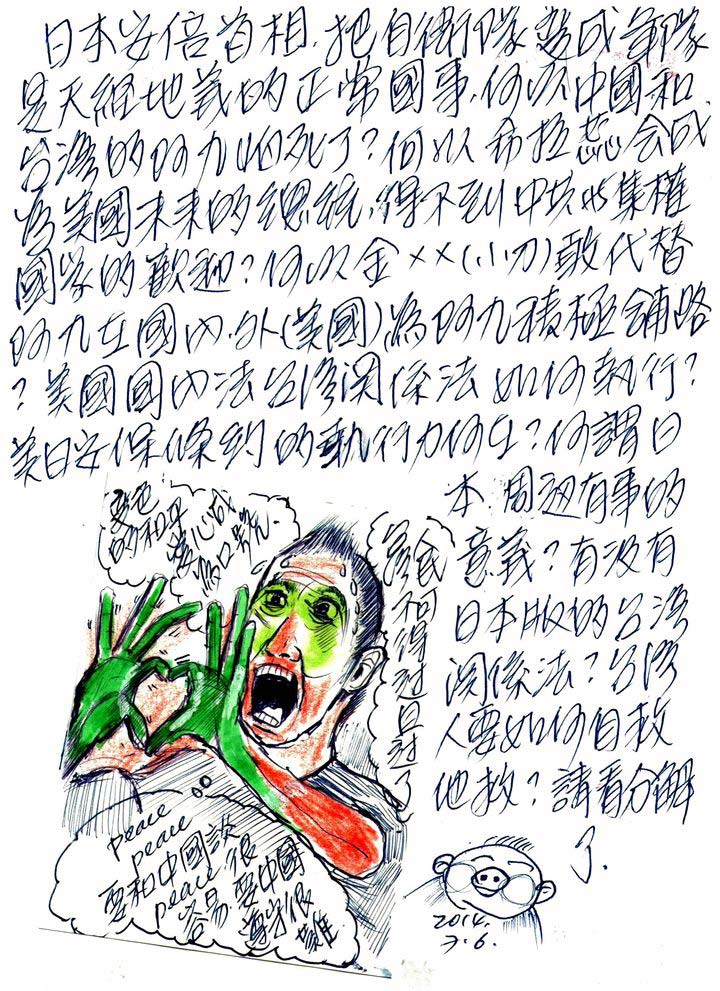 日本安倍首相.把自衛隊變成軍隊
是天經地義的正常國事.何以中國和
台灣的阿九怕死了？何以希拉蕊会成
為美國未來的總統.得不到中共的集權
國家的歡迎？何以金××(小刀)敢代替
阿九在國內.外(美國)為阿九積極鋪路
？美國國內法台灣関係法如何執行？
美日安保條約的執行力何在？何謂日
本周邊有事的
意義？有没有
日本版的台湾
関係法？台灣
人要如何自救
他救？請看分解
了.
的和平
愛心成
為口號
不得過且過了
peace
peace
要和中國談
peace很
容易要中國
遵守很
難
2014.
3.6.